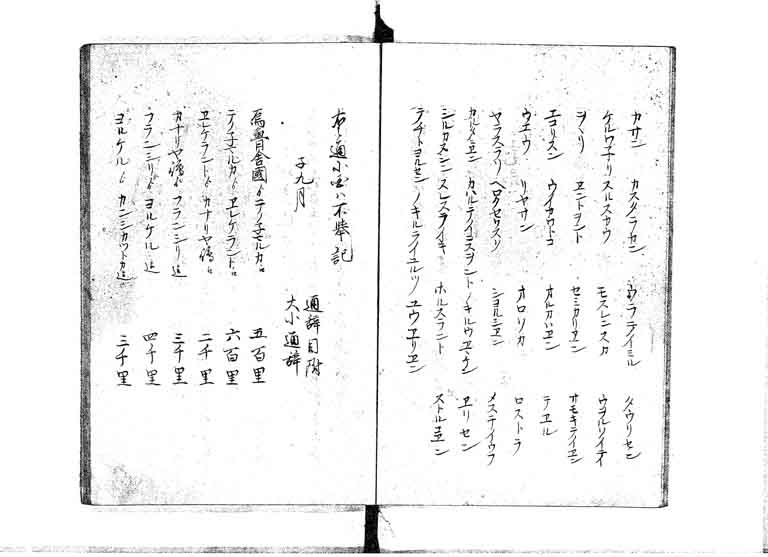 カサン カスタラセン ウンフテイミル ノウリセン
ケルワナリ スルスカウ モスレンスカ ウヲルソイテイ
ヲヽリ ヱントヲント セミカリヱン オモキテイヱン
エコリスン ウイカウトコ オルカハヱン テヱル
ウエーウ リヤサン オロリカ ロストラ
ヤラスラリ ヘロクセウスソ シヨルシヱン メステイウフ
カルタヱン カルテイコスヲント ノキルウヱウン ヱリセン
シルカタシン スレスラノイキ ホルスラント ストルヱン
テノチトヨルセン ノキルライユルツ ユウヱリヱン
右之通小国ハ不挙記
子九月
通辞目附
大小通辞
為魯舎國ゟテイノ子マルカ迄 五百里
テイノ子マルカゟヱレケラント迄 六百里
ヱレケラントゟカナリヤ嶋迄 二千里
カナリヤ嶋ゟフランシリ迄 三千里
フランシリゟヨルケル迄 四千里
ヨルケルゟカンシカウトカ迄 三千里